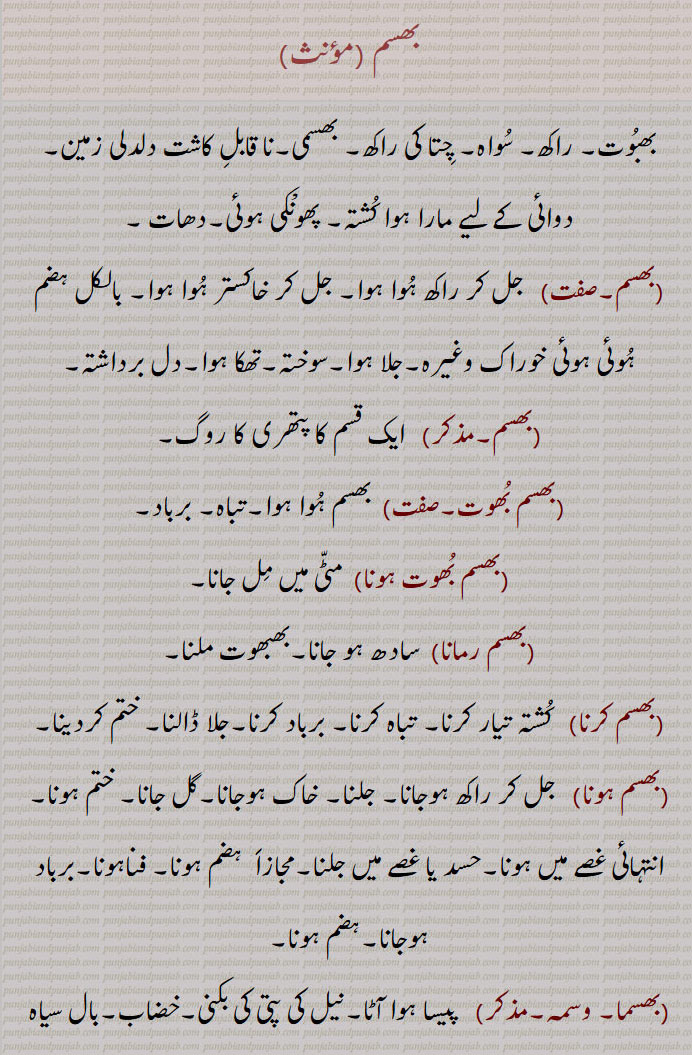 بھسم (مؤنث)
بھبُوت۔ راکھ۔ سُواہ۔ چِتا کی راکھ۔ بھسمی۔نا قابلِ کاشت دلدلی زمین۔
دوائی کے لیے مارا ہوا کُشتہ۔ پھونْکی ہوئی۔دھات ۔
(بھسم۔صفت) جل کر راکھ ہُوا ہوا۔ جل کر خاکستر ہُوا ہوا۔ بالکل ہضم
ہُوئی ہوئی خوراک وغیرہ۔جلا ہوا۔سوختہ۔تھکا ہوا۔دل برداشتہ۔
(بھسم۔مذکر) ایک قسم کا پتھری کا روگ۔
(بھسم بُھوت۔صفت) بھسم ہُوا ہوا۔تباہ۔ برباد۔
(بھسم بُھوت ہونا) مٹّی میں مِل جانا۔
(بھسم رمانا) سادھ ہو جانا۔بھبھوت ملنا۔
(بھسم کرنا) کُشتہ تیار کرنا۔ تباہ کرنا۔ برباد کرنا۔جلا ڈالنا۔ ختم کردینا۔
(بھسم ہونا) جل کر راکھ ہوجانا۔ جلنا۔ خاک ہوجانا۔گل جانا۔ ختم ہونا۔
انتہائی غصے میں ہونا۔حسد یا غصے میں جلنا۔مجازاً ہضم ہونا۔ فناہونا۔برباد
ہوجانا۔ہضم ہونا۔
(بھسما۔ وسمہ۔مذکر) پیسا ہوا آٹا۔نیل کی پتی کی بکنی۔خضاب۔بال سیاہ